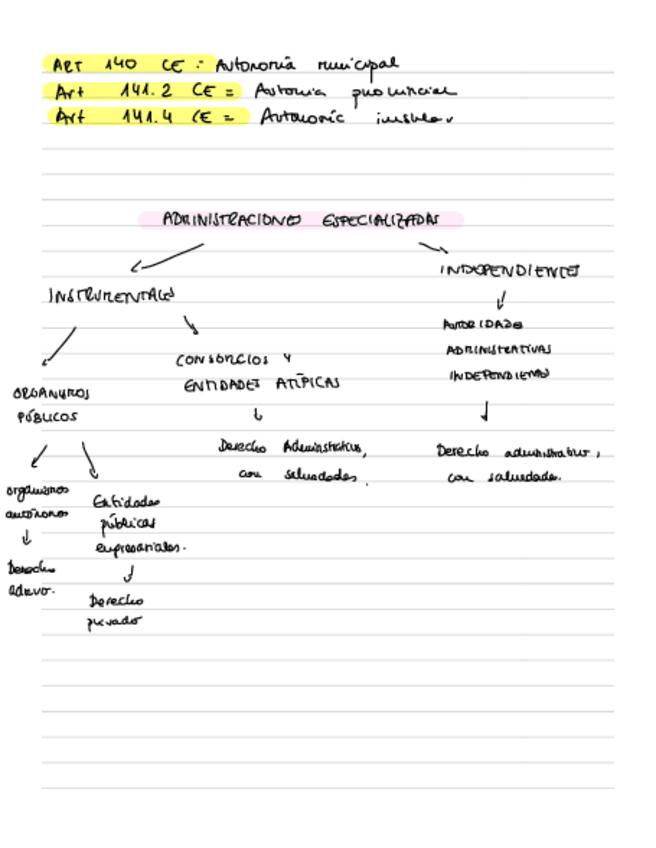 ART 140 CE = Autonomía municipal
Art 141.2 CE = Autonía provincial
Art 141.4 CE = Autonomía insular
ADMINISTRACIONES ESPECIALIZADAS
INSTRUMENTALES
INDEPENDIENTES
ORGANISMOS
PÚBLICOS
CONSORCIOS Y
ENTIDADES ATÍPICAS
AUTORIDADES
ADMINISTRATIVAS
INDEPENDIENTES
Derecho Administrativo,
con salvedades.
Derecho administrativo,
con salvedades.
organismos
autónomos
Derecho
admvo.
Entidades
públicas
empresariales.
Derecho
privado